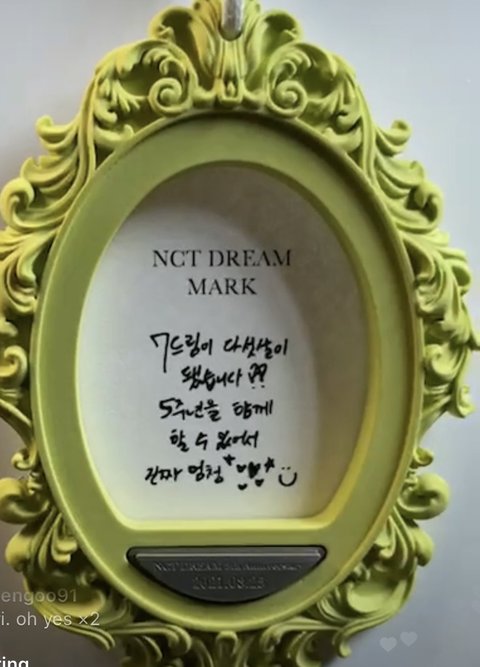 NCT DREAM
MARK
7드림이 다섯살이
됐습니다 !?!?
5주년을 함께
할 수 있어서
진짜 멍청
NCT DREAM 5th Anniversary
2021.08.25
engoo91
i. oh yes ×2
ring